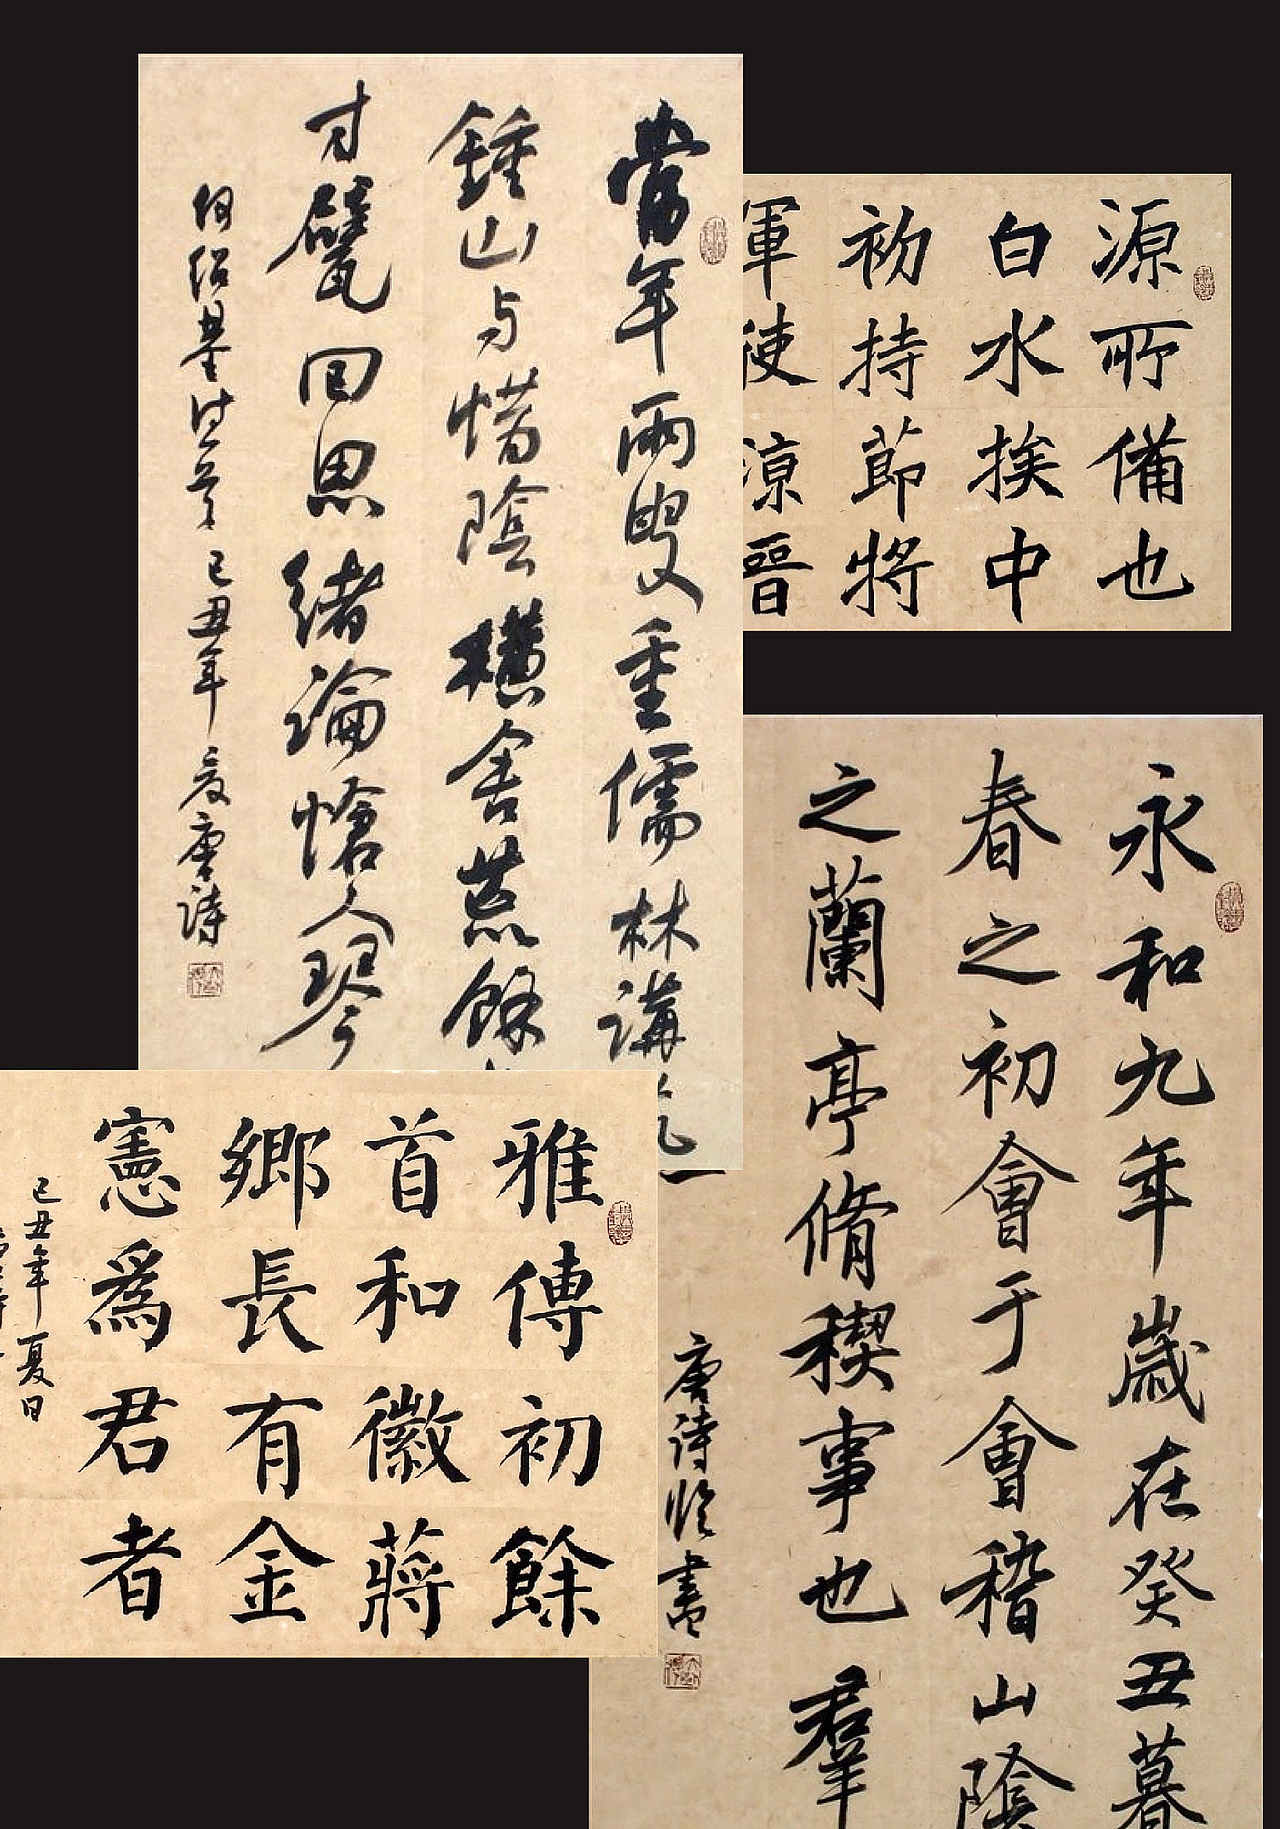 當年兩叟重儒林講
鍾山与惜陰橫舍荒餘
才甓回思緒論愴人琴
何紹基詩一首 己丑年夏唐詩
源所備也
白水挨中
初持節將
軍使涼晉
永和九年歲在癸丑暮
春之初會于會稽山陰
之蘭亭脩稧事也羣
唐詩臨書
雅傳初餘
首和徽蔣
鄉長有金
憲爲君者
己丑年夏日